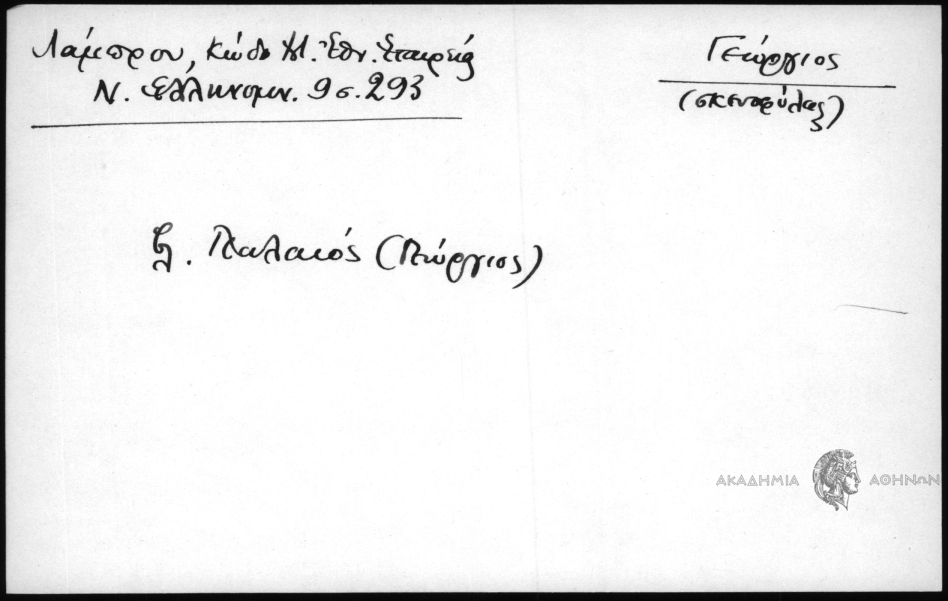 Λάμπρου, Κώδ. Ἱστ. Ἐθν. Ἑταιρείας
Ν. Ἑλληνομν. 9 σ. 293
Γεώργιος
(σκευοφύλαξ)
βλ. Γαλακός (Γεώργιος)
ΑΚΑΔΗΜΙΑ ΑΘΗΝΩΝ